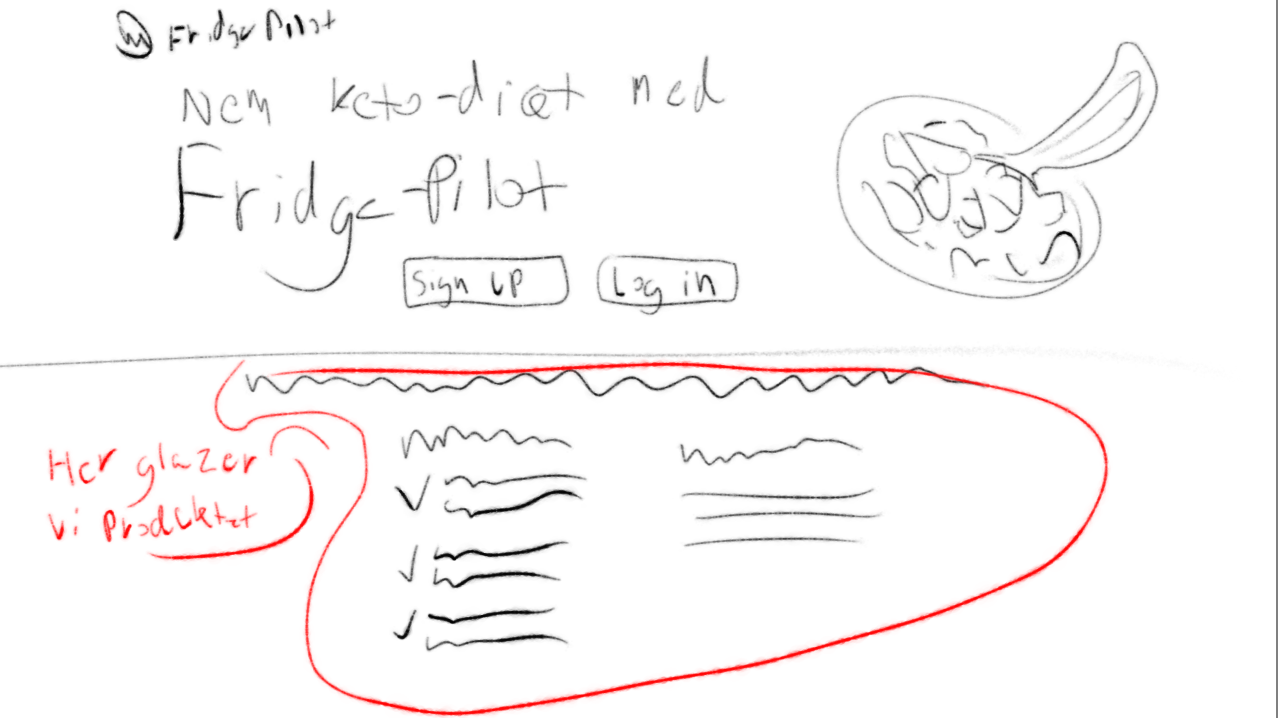 Fridge Pilot
Nem keto-diæt med
Fridge-Pilot
Sign up
Log in
Her glazer
vi Produktet